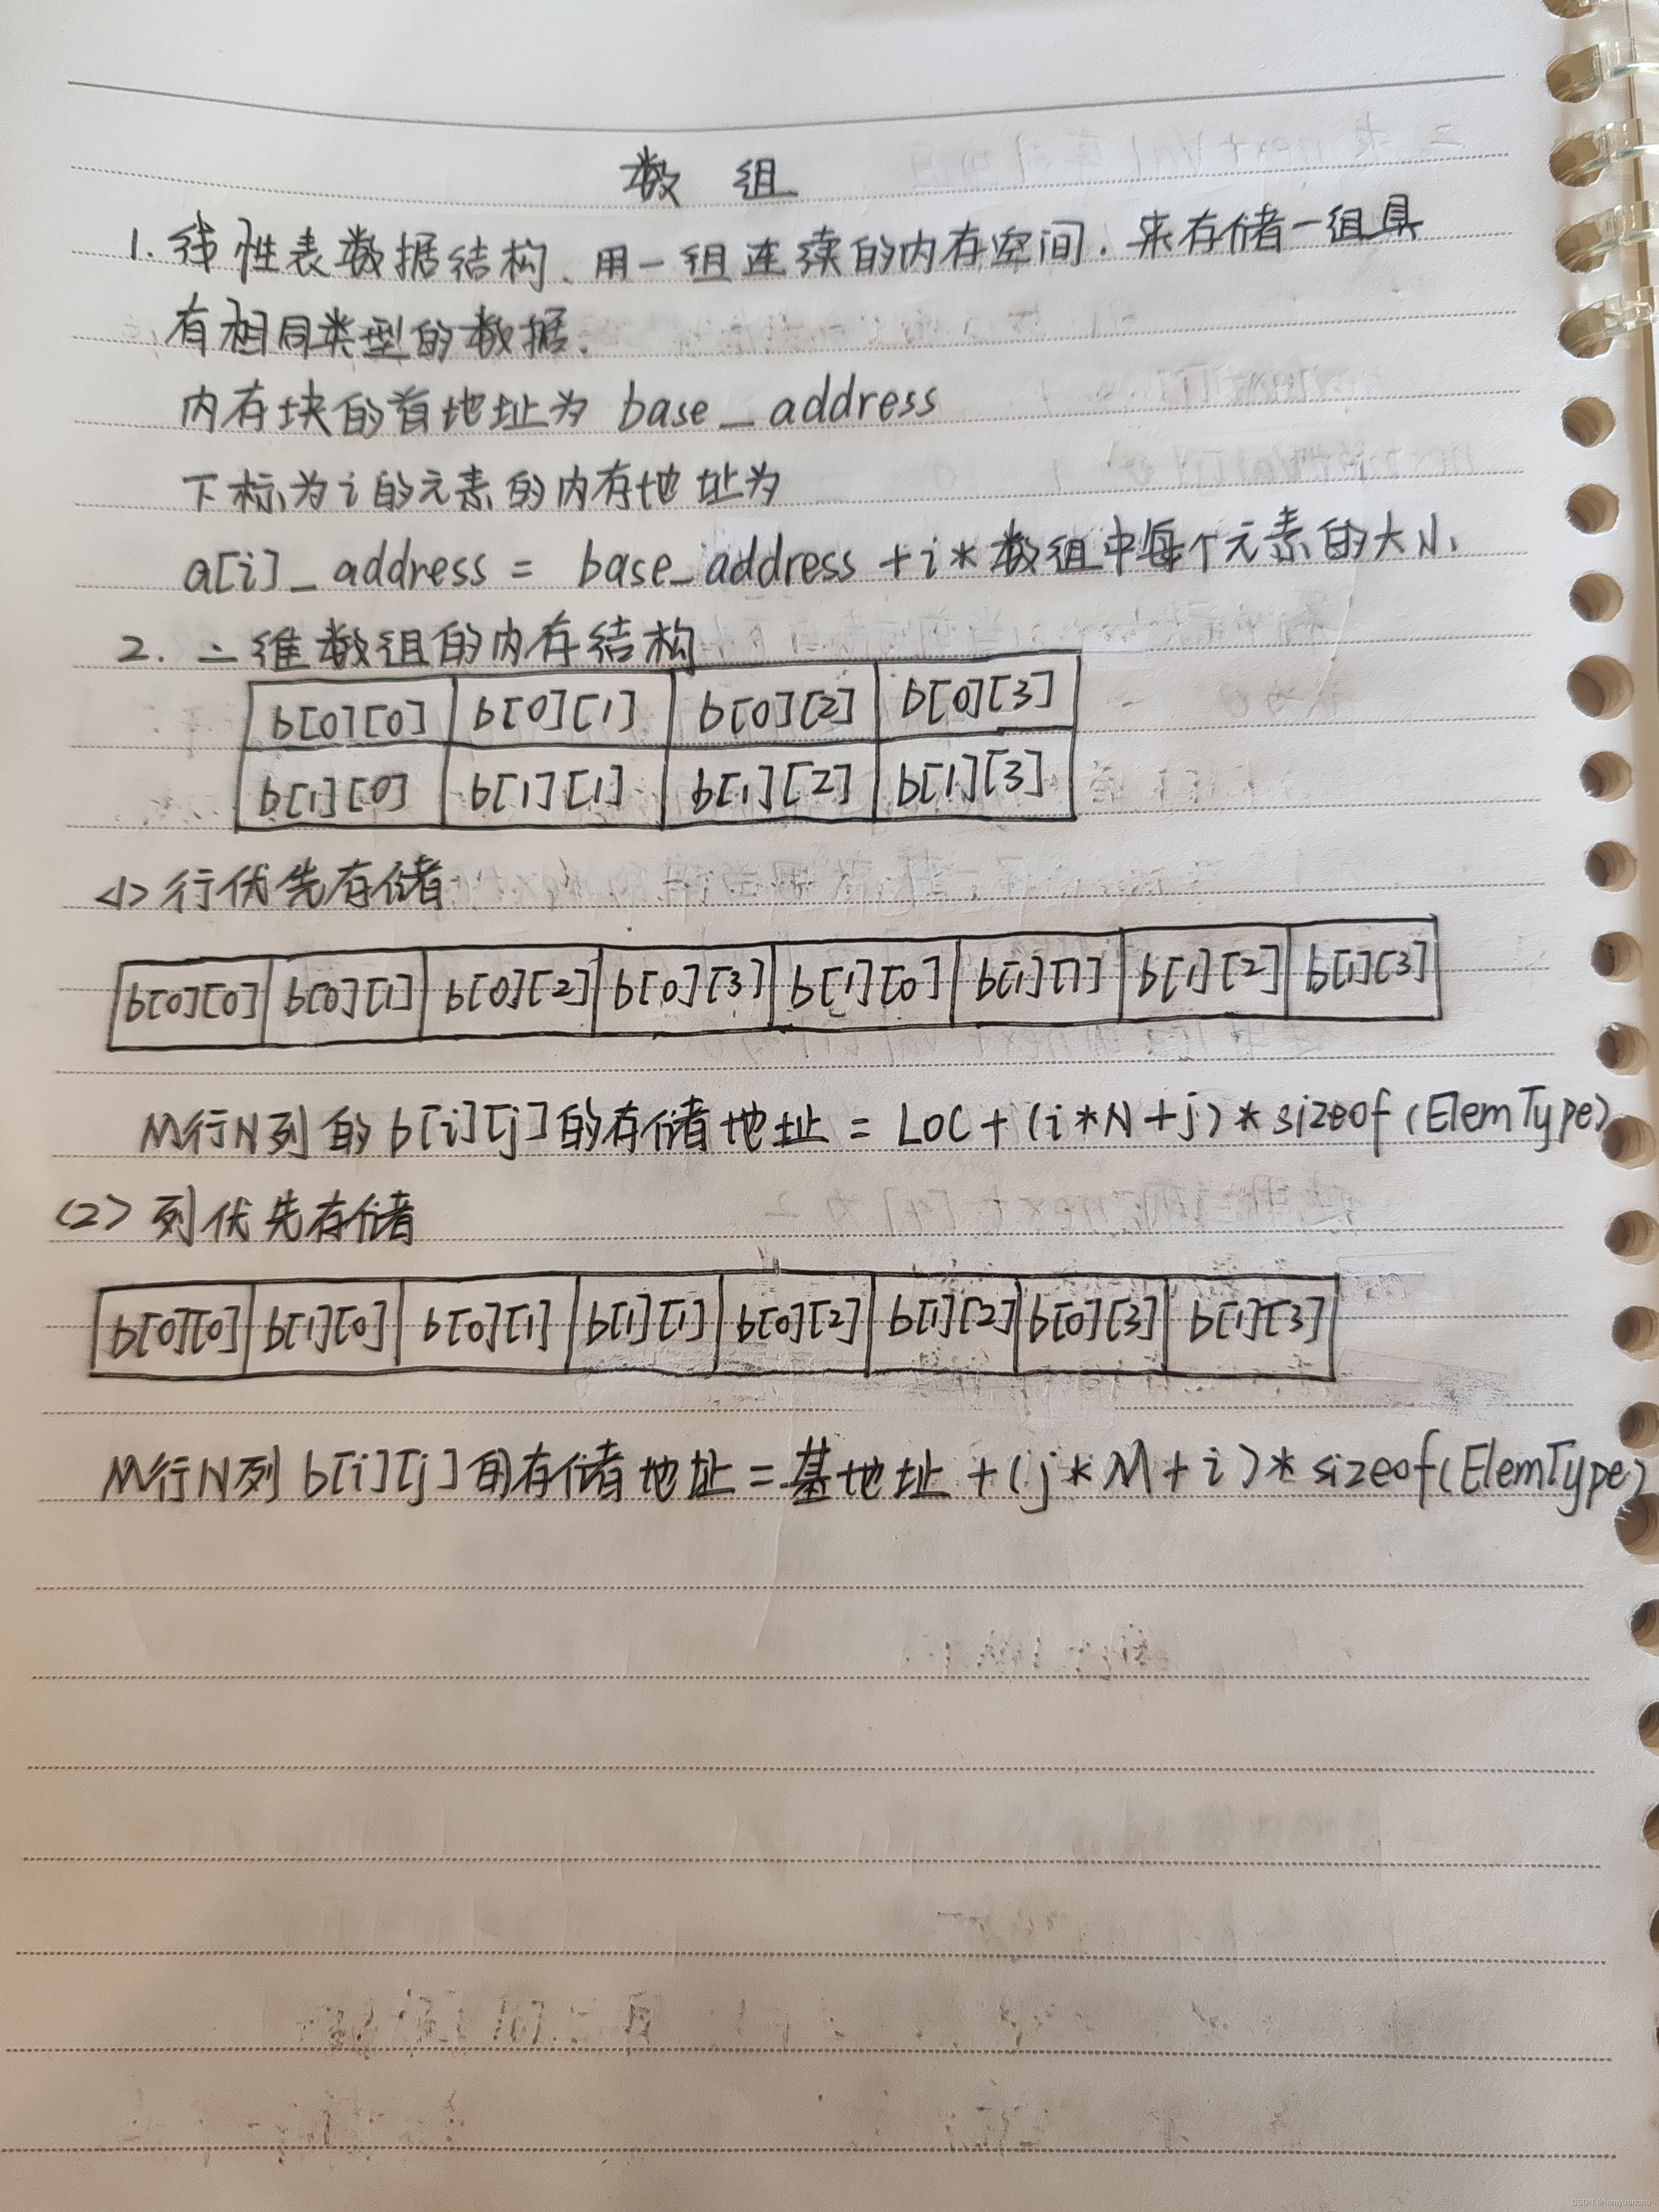 数 组
1. 线性表数据结构、用一组连续的内存空间.来存储一组具
有相同类型的数据.
内存块的首地址为 base_address
下标为i的元素的内存地址为
a[i]_address = base_address + i * 数组中每个元素的大小
2. 二维数组的内存结构
b[0][0] b[0][1] b[0][2] b[0][3]
b[1][0] b[1][1] b[1][2] b[1][3]
<1> 行优先存储
b[0][0] b[0][1] b[0][2] b[0][3] b[1][0] b[1][1] b[1][2] b[1][3]
M行N列的b[i][j]的存储地址 = LOC + (i*N+j) * sizeof (ElemType)
(2> 列优先存储
b[0][0] b[1][0] b[0][1] b[1][1] b[0][2] b[1][2] b[0][3] b[1][3]
M行N列 b[i][j]的存储地址 = 基地址 + (j*M+i) * sizeof(ElemType)